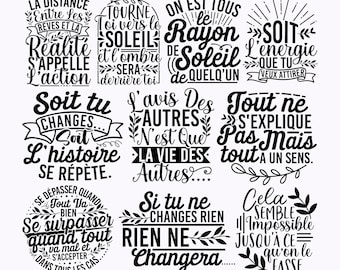 LA DISTANCE
Entre Les
RÊVES ET LA
Réalité
S'APPELLE
L'action
TOURNE
toi vers le
SOLEIL
et l'ombre
SERA
derrière toi
ON EST TOUS
le
Rayon
DE
Soleil
DE
QUELQ'UN
SOIT
L'énergie
QUE TU
VEUX ATTIRER
Soit tu
CHANGES...
Soit
L'histoire
SE RÉPÈTE.
L'avis Des
AUTRES
N'est Que
LA VIE DES
Autres....
Tout ne
S'EXPLIQUE
Pas Mais
tout A UN SENS.
SE DÉPASSER QUAND
Tout Va
BIEN
Se surpasser
quand tout
va mal et
S'ACCEPTER
DANS TOUS LES CAS
Si tu ne
CHANGES RIEN
RIEN NE
Changera....
Cela
SEMBLE
Impossible
JUSQU'À CE
qu'on le
FASSE